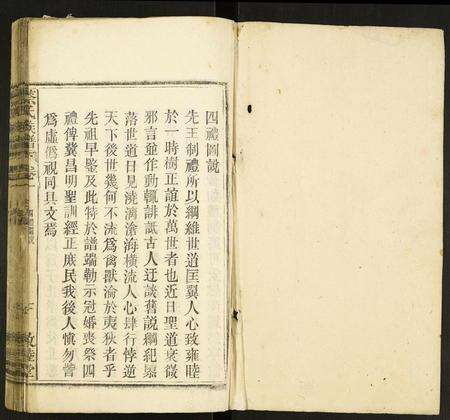 四禮圖說
先王制禮所以綱維世道匡翼人心致雍睦
於一時樹正誼於萬世者也近日聖道衰微
邪言並作動輒誹詆古人迂談舊說綱犯
落世道日見澆漓滄海橫流人心肆行悖逆
天下後世幾何不流爲禽獸淪於夷狄者乎
先祖早鑒及此特於譜端勒示冠婚喪祭四
禮俾冀昌明聖訓經正庶民我後人愼勿嘗
爲虛僞視同具文焉
氏族譜
敦睦堂